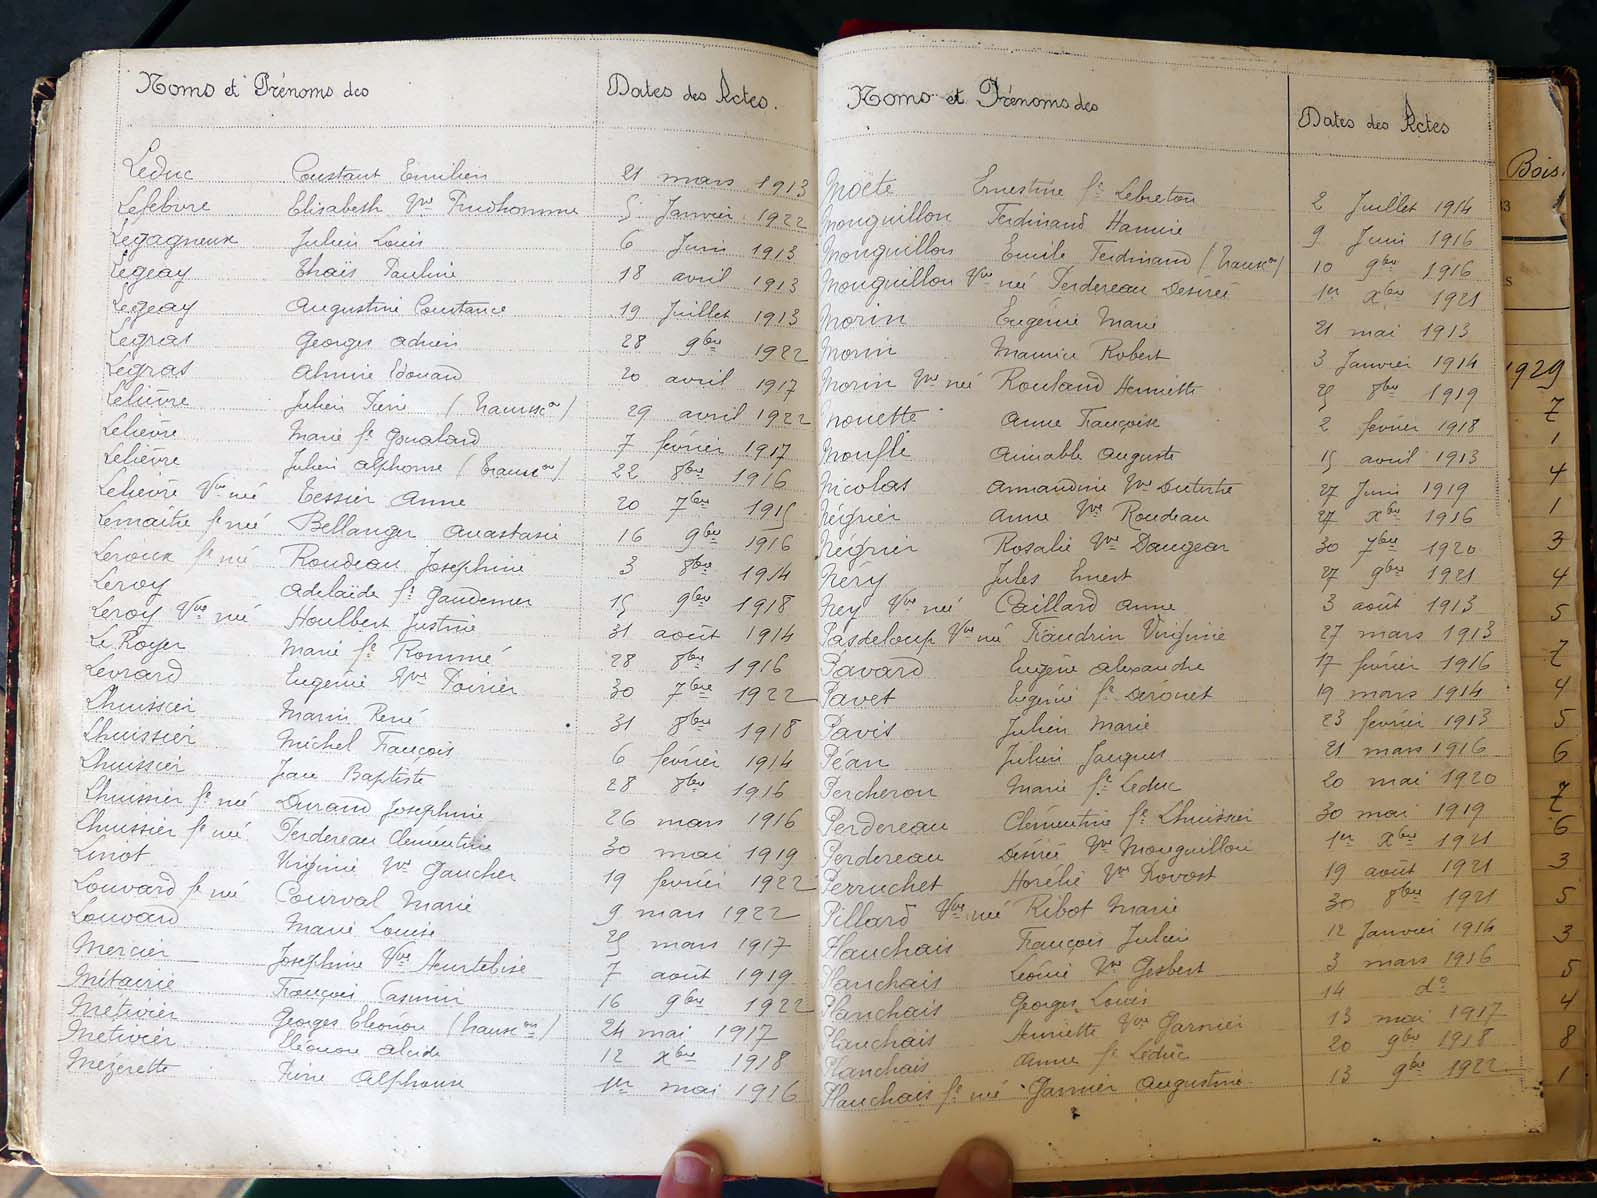 Noms et Prénoms des Dates des Actes.
Leduc Constant Emilien 21 mars 1913
Lefebvre Elisabeth Vve Prudhomme 5 Janvier 1922
Legagneux Julien Louis 6 Juin 1913
Legeay Thaïs Pauline 18 avril 1913
Legeay Augustine Constance 19 Juillet 1913
Legras Georges Adrien 28 9bre 1922
Legras Edouard 20 avril 1917
Lelièvre Julien Pierre 29 avril 1922
Lelièvre Marie fe Goualard 7 février 1917
Lelièvre Julien Alphonse 22 8bre 1916
Lelièvre Vve née Tessier Anne 20 7bre 1915
Lemaitre fe née Bellanger Anastasie 16 9bre 1916
Leroux fe née Rondeau Josephine 3 8bre 1914
Leroy Adelaïde fe Gaudemer 15 9bre 1918
Leroy Vve née Houlbert Justine 31 août 1914
Le Royer Marie fe Rommé 28 8bre 1916
Levrard Eugénie Vve Poirier 30 7bre 1922
Lhuissier Marin René 31 8bre 1918
Lhuissier Michel François 6 février 1914
Lhuissier Jean Baptiste 28 8bre 1916
Lhuissier fe née Durand Josephine 26 mars 1916
Lhuissier fe née Perdereau Clémentine 30 mai 1919
Linot Virginie Vve Gaucher 19 février 1922
Louvard fe née Courval Marie 9 mars 1922
Louvard Marie Louise 25 mars 1917
Mercier Josephine Vve Heurtebise 7 août 1919
Métairie François Casimir 16 9bre 1922
Métivier Georges Eléonor 24 mai 1917
Métivier Eléonore Alcide 12 Xbre 1918
Mézerette Pierre Alphonse 1er mai 1916
Noms et Prénoms des Dates des Actes
Moëte Ernestine fe Lebreton 2 Juillet 1914
Monguillon Ferdinand 9 Juin 1916
Monguillon Emile Ferdinand 10 9bre 1916
Monguillon Vve née Perdereau Désirée 1er Xbre 1921
Morin Eugénie Marie 21 mai 1913
Morin Maurice Robert 3 Janvier 1914
Morin Vve née Rouland Henriette 25 8bre 1919
Mouette Anne Françoise 2 février 1918
Moufle Aimable Auguste 15 avril 1913
Nicolas Amandine Vve Dutertre 27 Juin 1919
Négrier Anne Vve Rondeau 27 Xbre 1916
Négrier Rosalie Vve Daugear 30 7bre 1920
Néry Jules Ernest 27 9bre 1921
Ney Vve née Caillard Anne 3 août 1913
Pasdeloup Vve née Fraudrin Virginie 27 mars 1913
Pavard Eugène Alexandre 17 février 1916
Pavet Eugénie fe Derouet 19 mars 1914
Pavis Julien Marie 23 février 1913
Péan Julien Jacques 21 mars 1916
Percheron Marie fe Leduc 20 mai 1920
Perdereau Clémentine fe Lhuissier 30 mai 1919
Perdereau Désirée Vve Monguillon 1er Xbre 1921
Perruchet Vve Provost 19 août 1921
Pillard Vve née Ribot Marie 30 8bre 1921
Planchais François Julien 12 Janvier 1914
Planchais Léonie Vve Gesbert 3 mars 1916
Planchais Georges Louis 14 do
Planchais Henriette Vve Garnier 13 mai 1917
Planchais Anne fe Leduc 20 9bre 1918
Planchais fe née Garnier Augustine 13 9bre 1922
Bois
1929
7
1
4
1
3
4
5
7
4
5
6
7
6
3
5
3
5
4
8
1